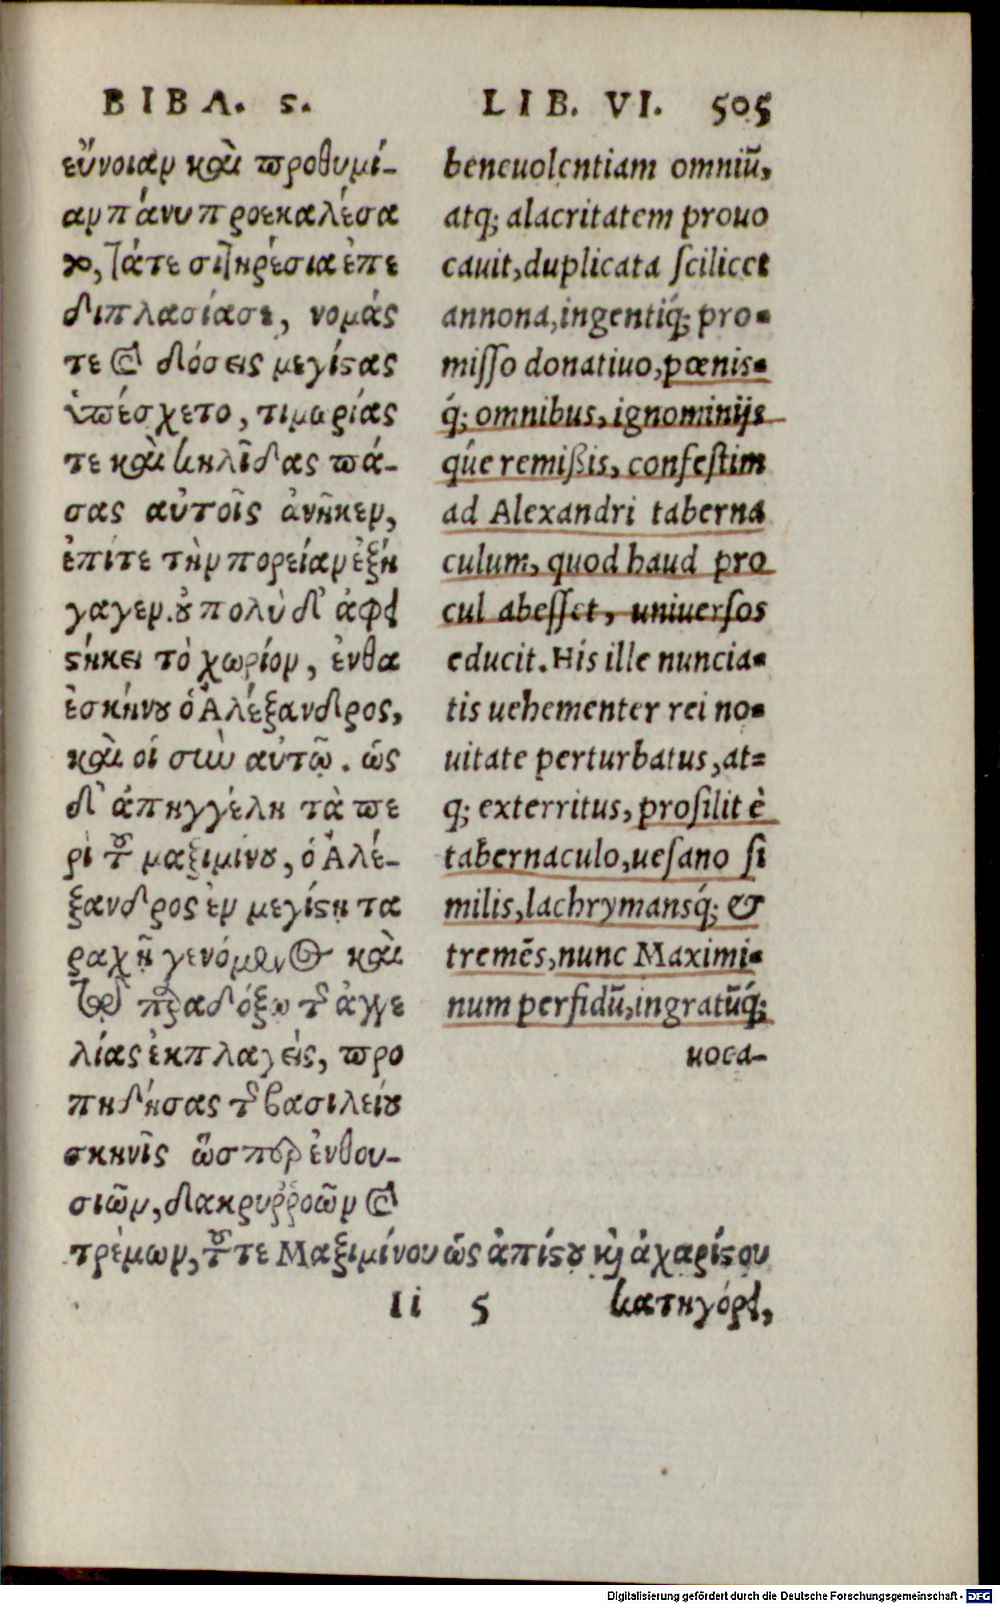 ΒΙΒΛ. ϛ.
εὔνοιαν καὶ προθυμί-
αν πάνυ προεκαλέσα
το, τάτε σιτηρέσια ἐπε
διπλασίασε, νομάς
τε & δόσεις μεγίϛας
ὑπέσχετο, τιμωρίας
τε καὶ κηλῖδας πά-
σας αὐτοῖς ἀνῆκεν,
ἐπίτε τὴν πορείαν ἐξή
γαγεν. ȣ πολὺ δ' ἀφε
ϛήκει τὸ χωρίον, ἔνθα
ἐσκήνȣ ὁ Ἀλέξανδρος,
καὶ οἱ σὺν αὐτῷ. ὡς
δ' ἀπηγγέλη τὰ πε
ρὶ τȣ μαξιμίνȣ, ὁ Ἀλέ-
ξανδρος ἐν μεγίϛῃ τα
ραχῇ γενόμενος καὶ
τῷ παραδόξῳ τῆς ἀγγε
λίας ἐκπλαγεὶς, προ
πηδήσας τȣ βασιλείȣ
σκηνῆς ὥσπερ ἐνθου-
σιῶν, δακρυῤῥοῶν &
τρέμων, τȣ τε Μαξιμίνου ὡς ἀπίϛȣ κὶ ἀχαρίϛου
Ii 5 κατηγόρει,
LIB. VI. 505
beneuolentiam omniū,
atq; alacritatem prouo
cauit, duplicata scilicet
annona, ingentiq́; pro-
misso donatiuo, pœnis-
q́; omnibus, ignominijs
que remißis, confestim
ad Alexandri taberna
culum, quod haud pro
cul abesset, uniuersos
educit. His ille nuncia-
tis uehementer rei no-
uitate perturbatus, at-
q; exterritus, prosilit è
tabernaculo, uesano si
milis, lachrymansq́; &
tremēs, nunc Maximi-
num perfidū, ingratūq́;
uoca-
Digitalisierung gefördert durch die Deutsche Forschungsgemeinschaft - DFG